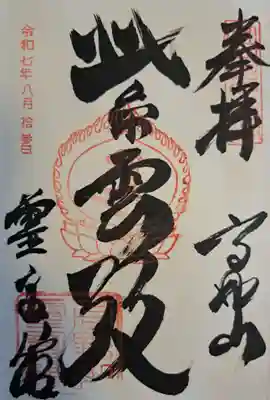 奉拝
高野山
紫雲殿
令和七年八月拾参日
霊宝館